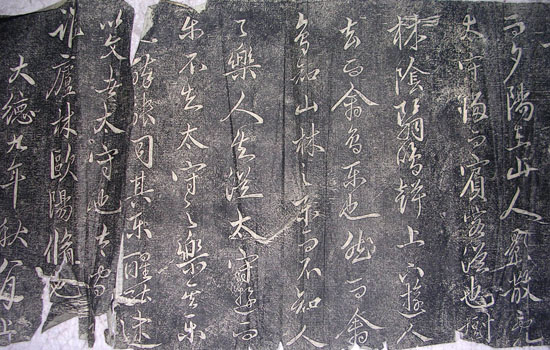 而夕陽在山人影散亂
太守歸而賓客從也樹
林陰翳鳴聲上下遊人
去而禽鳥樂也然而禽
鳥知山林之樂而不知人
之樂人知從太守遊而
樂不知太守之樂其樂
醉能同其樂醒能述
以文者太守也太守謂
誰廬林歐陽脩也
大德九年秋八月上